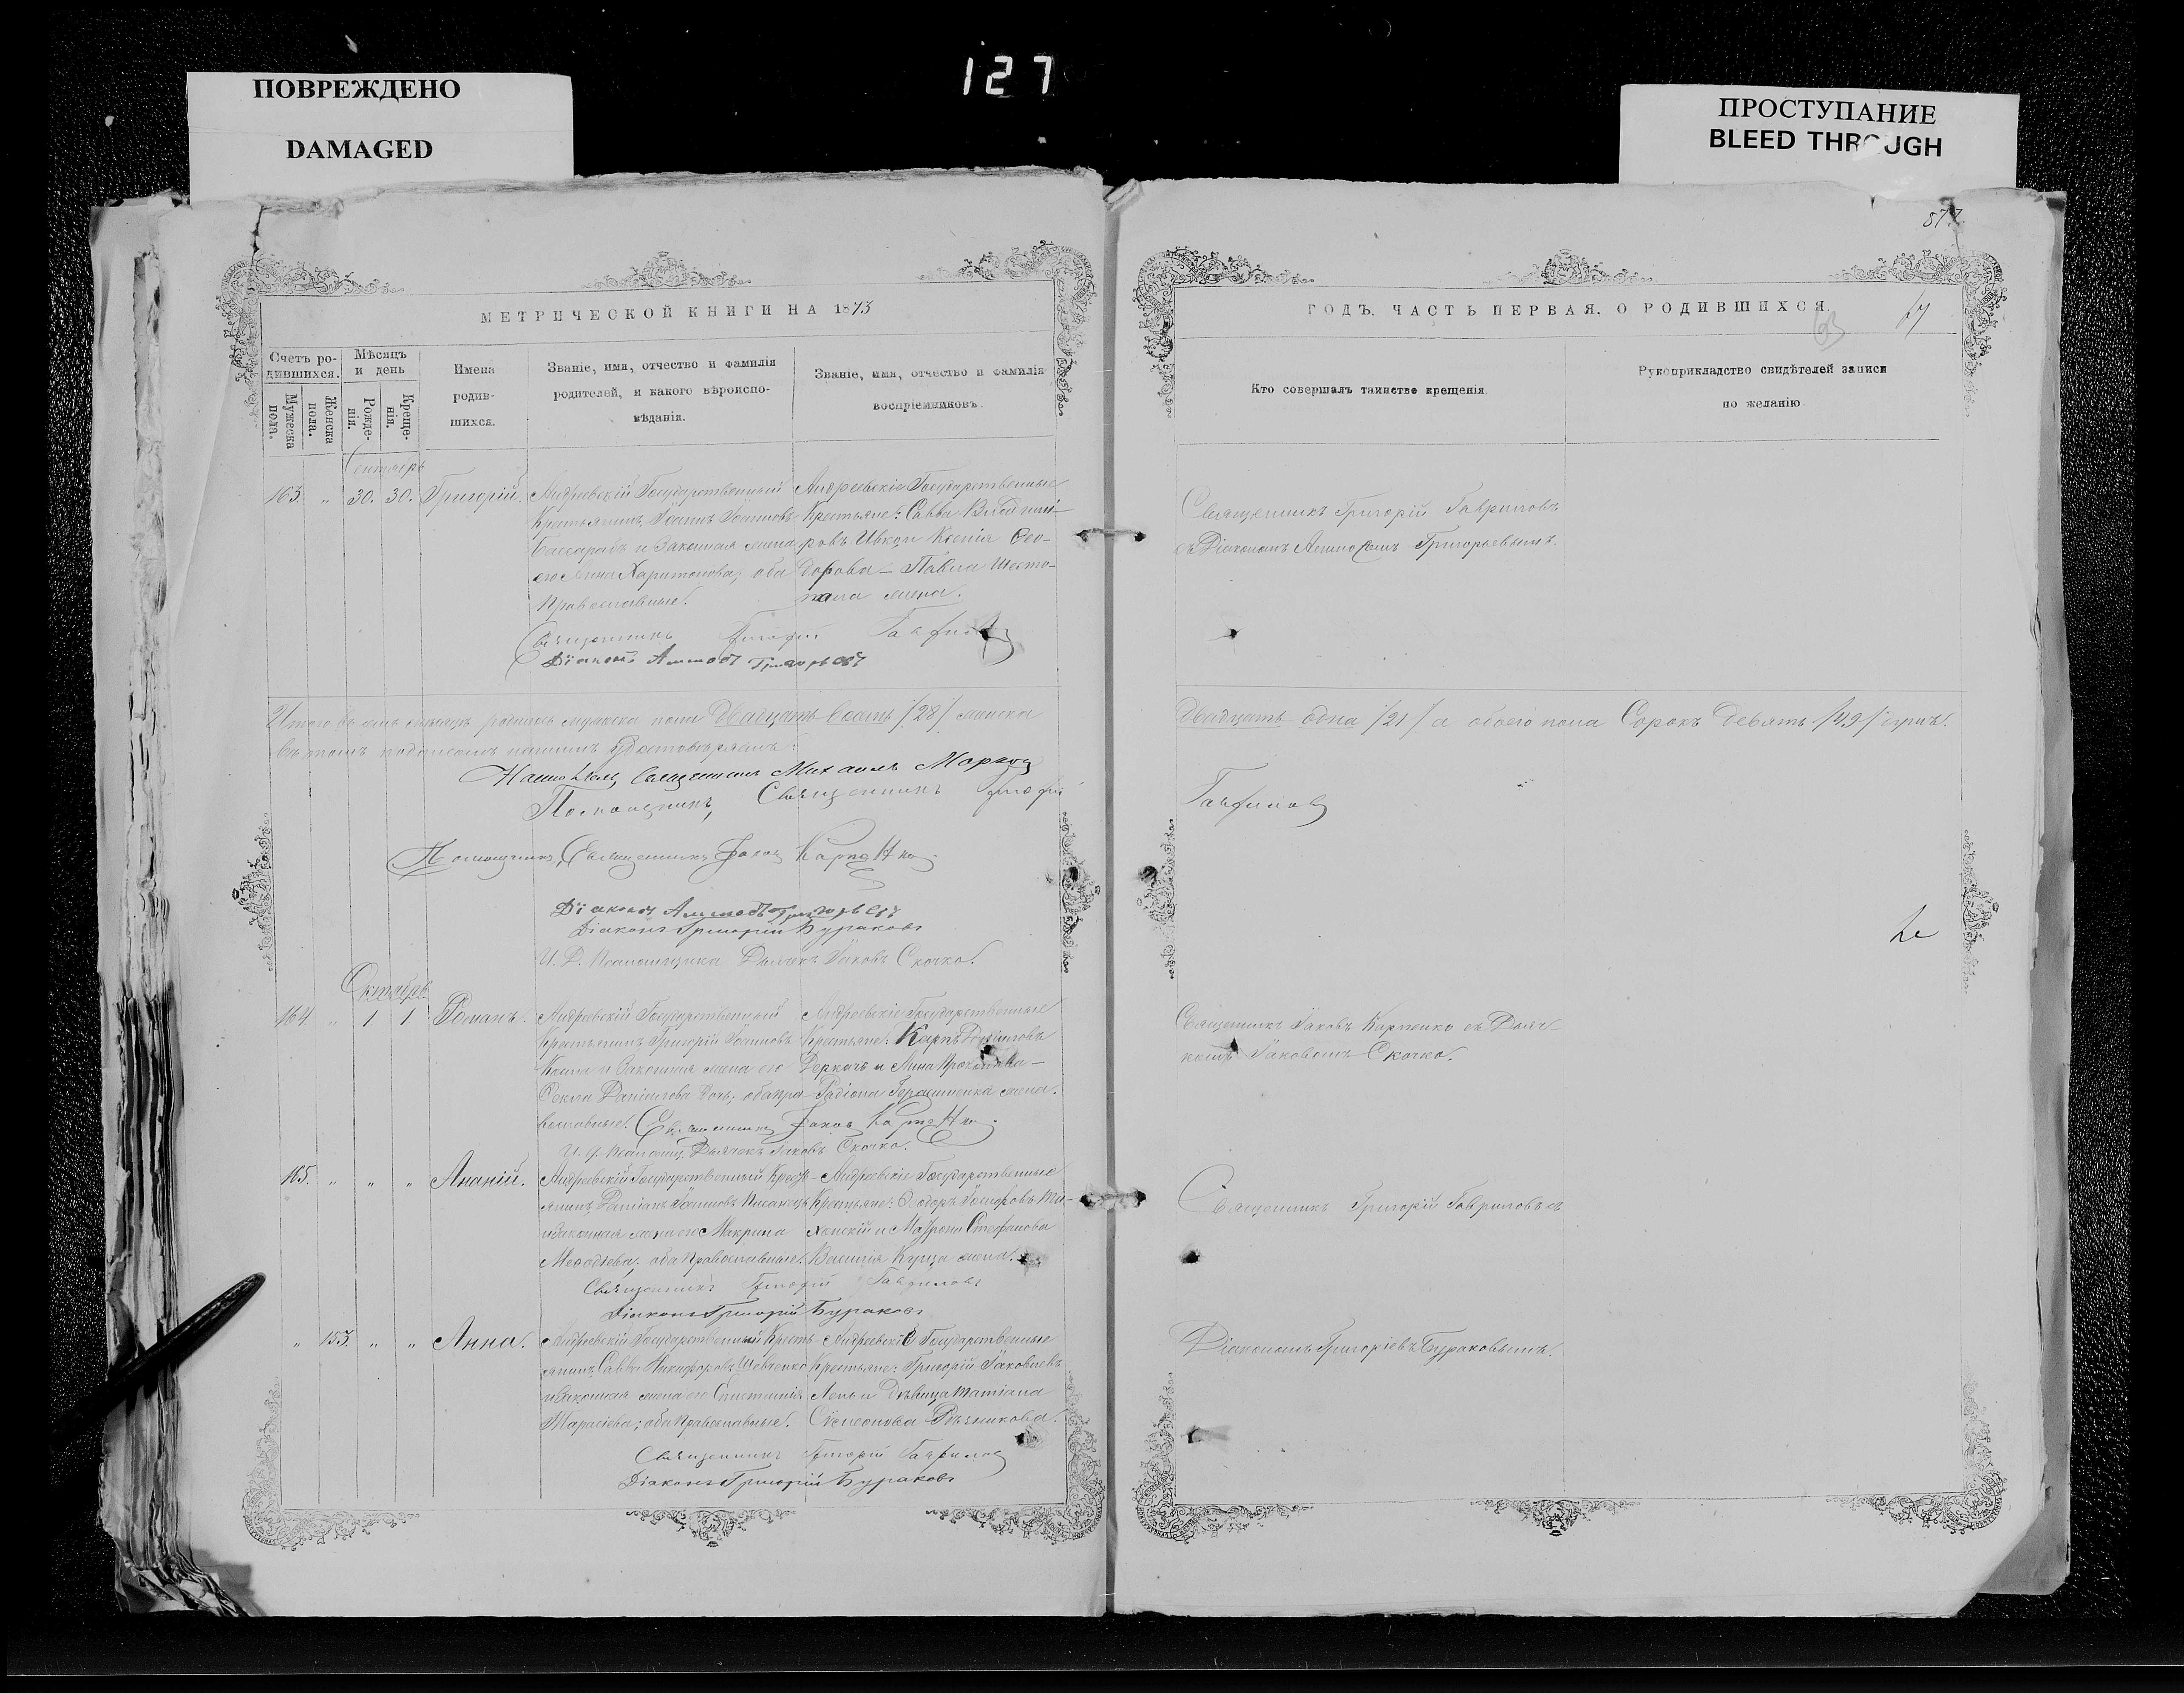 127
ПОВРЕЖДЕНО
DAMAGED
ПРОСТУПАНИЕ
BLEED THROUGH
577
МЕТРИЧЕСКОЙ КНИГИ НА 1873
Счетъ ро-
дившихся.
Мужеска пола.
Женска пола.
Мѣсяцъ
и день
Рожде-
нія.
Креще-
нія.
Имена
родив-
шихся.
Званіе, имя, отчество и фамилія
родителей, и какого вѣроиспо-
вѣданія.
Званіе, имя, отчество и фамилія
воспріемниковъ.
Сентябрь
163. " 30. 30. Григорій.
Андреевскій Государственный
Крестьянинъ Іоаннъ Іоанновъ
Бассарабъ и Законная жена
его Анна Харитонова; оба
Православные.
Андреевскіе Государственные
Крестьяне: Савва Владимі-
ровъ Ивкон Ксенія Ѳео-
дорова – Павла Шесто-
пала жена.
Священникъ Григорій Гавриловъ
Діаконъ Григорьевъ
Итого въ семъ мѣсяцѣ родилось мужеска пола Двадцать восемь /28/ женска
въ томъ подписомъ нашимъ удостовѣряемъ:
Священникъ Михаилъ
Помощникъ, Священникъ Григорій
Помощникъ, Священникъ Іаковъ Карпенко
Діаконъ Григорьевъ
Діаконъ Григорій Бураковъ
И. Д. Псаломщика Дьячекъ Іаковъ Скочко.
Октябрь
164 " 1 1 Романъ.
Андреевскій Государственный
Крестьянинъ Григорій Іоанновъ
и Законная жена его
Ѳекла Даніилова Дочь; оба пра-
вославные.
Андреевскіе Государственные
Крестьяне: Карпъ
Деркачъ и Анна
Радіона Герасименка жена.
Священникъ Іаковъ Карпенко
И. д. Псаломщ. Дьячекъ Іаковъ Скочко.
165. " " " Ананій.
Андреевскій Государственный Кресть-
янинъ Даміанъ Іоанновъ Писанецъ
и Законная жена его Макрина
Меѳодіева; оба Православные.
Андреевскіе Государственные
Крестьяне: Ѳеодоръ Іосифовъ Ти-
хонскій и Матрона Стефанова
Василія Куща жена.
Священникъ Григорій Гавриловъ
Діаконъ Григорій Бураковъ
" 153. " " Анна.
Андреевскій Государственный Кресть-
янинъ Савва Никифоровъ Шевченко
и Законная жена его
Тарасіева; оба Православные.
Андреевскіе Государственные
Крестьяне: Григорій Іаковлевъ
Лень и Дѣвица Татіана
Симеонова Рѣзникова.
Священникъ Григорій Гавриловъ
Діаконъ Григорій Бураковъ
ГОДЪ. ЧАСТЬ ПЕРВАЯ. О РОДИВШИХСЯ.
63
Кто совершалъ таинство крещенія.
Рукоприкладство свидѣтелей записи
по желанію.
Священникъ Григорій Гавриловъ
съ Діакономъ Григорьевымъ.
Двадцать одна /21/ а обоего пола Сорокъ Девять /49/ душъ.
Гавриловъ
Священникъ Іаковъ Карпенко съ Дьяч-
комъ Іаковомъ Скочко.
Священникъ Григорій Гавриловъ съ
Діакономъ Григоріевъ Бураковымъ.